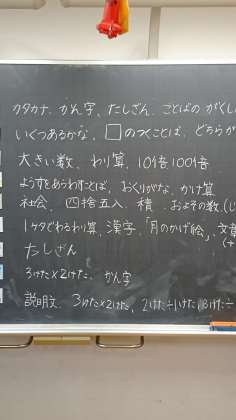 カタカナ、かん字、たしざん、ことばのがくし
いくつあるかな、□のつくことば、どちらが
大きい数、わり算、10倍100倍
ようすをあらわすことば、おくりがな、かけ算
社会、四捨五入、積、およその数、(じ
1ケタでわるわり算、漢字、「月のかげ絵」、文章
たしざん
3けた×2けた、かん字
説明文、3けた×2けた、2けた÷1けた、3けた÷